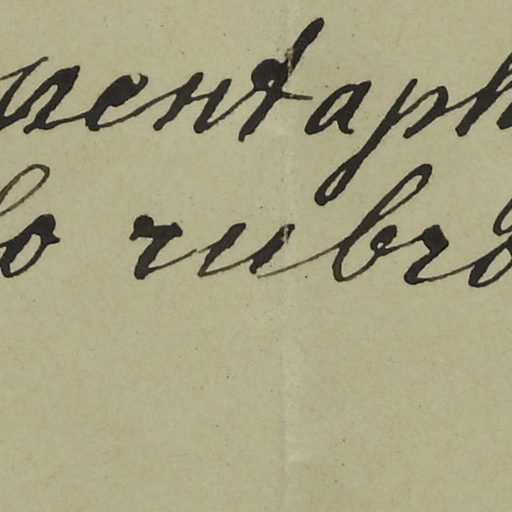 mentaph
lo rubro